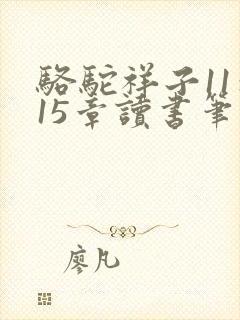 駱駝祥子11
15章讀書筆
廖凡